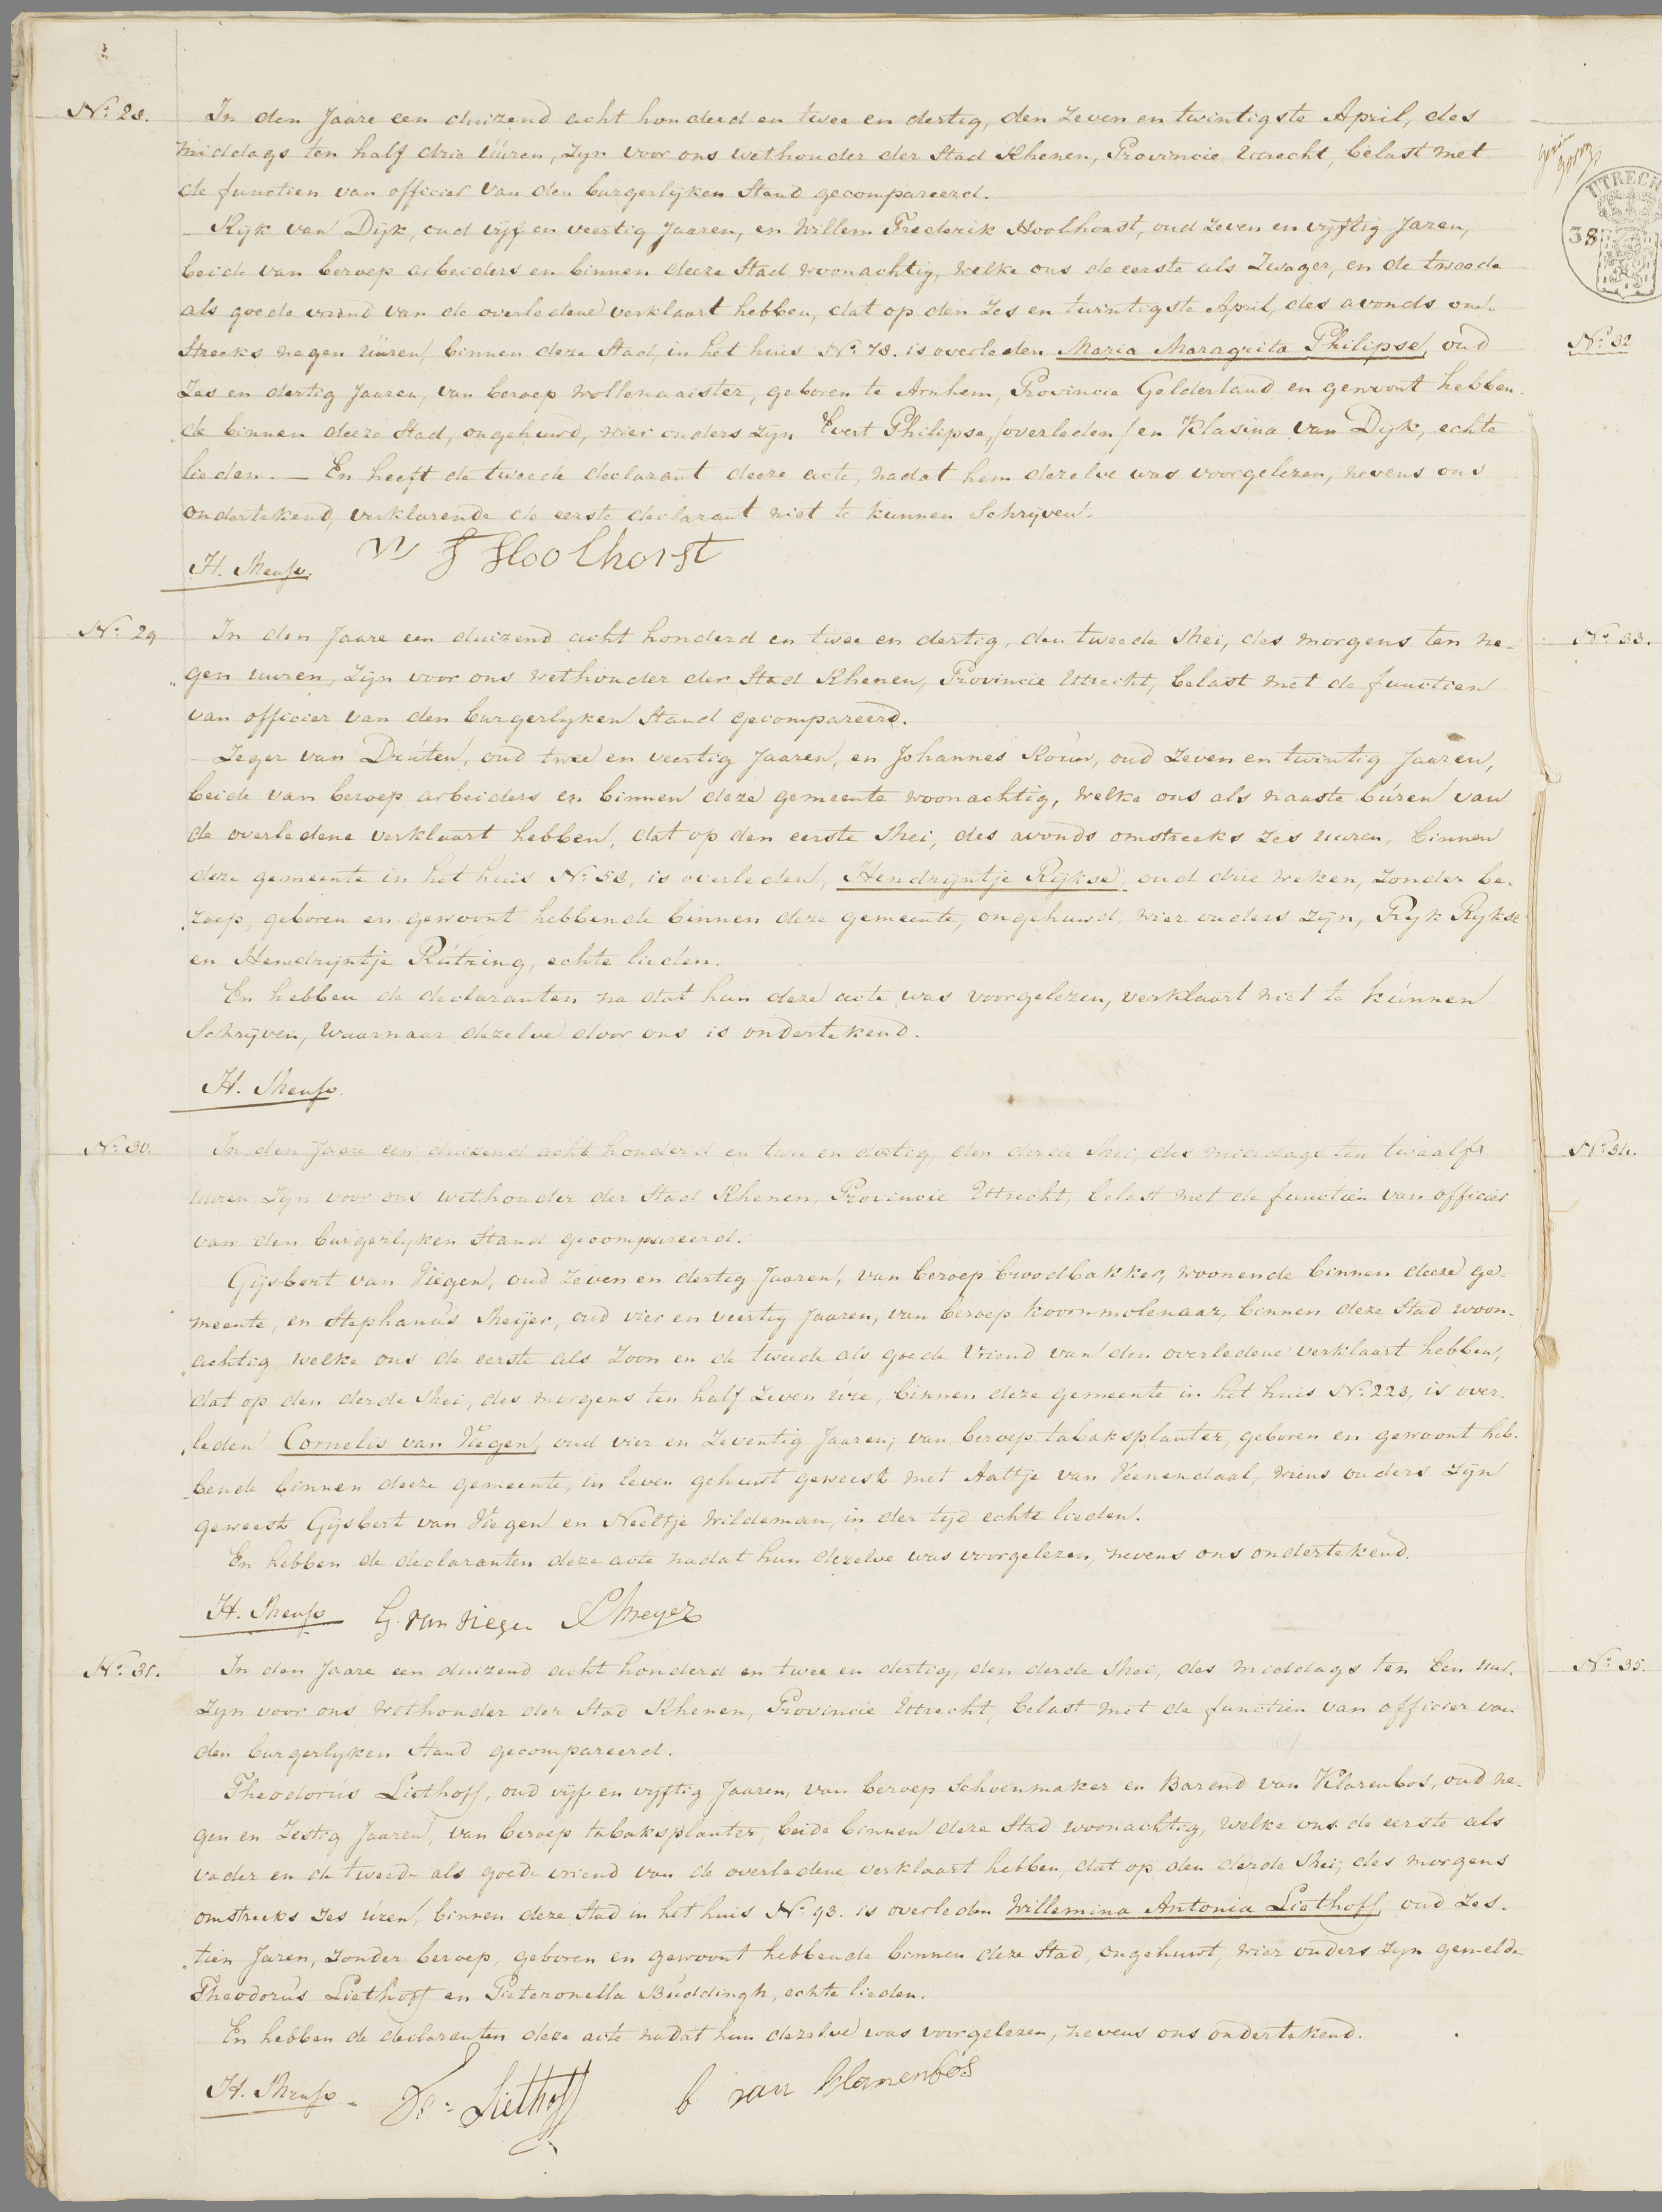 No. 28.
In den Jaare een duizend acht honderd en twee en dertig, den Zeven en twintigste April, des
middags ten half drie üüren, zyn voor ons wethouder der Stad Rhenen, Provincie Utrecht, belast met
de functien van officier van den burgerlyken Stand gecompareerd.
Ryk van Dyk, oud vyf en veertig Jaaren, en Willem Frederik Hoolhorst, oud Zeven en vyftig Jaren,
beide van beroep arbeiders en binnen deeze Stad woonachtig, welke ons de eerste als Zwager, en de tweede
als goede vriend van de overledene verklaart hebben, dat op den Zes en twintigste April, des avonds om-
streeks negen üüren, binnen deze Stad, in het huis No. 78. is overleden Maria Maragrita Philipse, oud
Zes en dertig Jaaren, van beroep wollenaaister, geboren te Arnhem, Provincie Gelderland en gewoont hebben-
„de binnen deeze Stad, ongehuwd, wier ouders zyn Evert Philipse /overleden/ en Klasina van Dyk, echte
lieden. — En heeft de tweede declarant deeze acte, nadat hem dezelve was voorgelezen, nevens ons
ondertekend, verklarende de eerste declarant niet te kunnen Schryven.
H. Menso. W F Hoolhorst
No. 29
In den Jaare een duizend acht honderd en twee en dertig, den tweede Mei, des morgens ten ne-
„gen uuren, zyn voor ons wethouder der Stad Rhenen, Provincie Utrecht, belast met de functien
van officier van den burgerlyken Stand gecompareerd.
Zeger van Drüten, oud twee en veertig Jaaren, en Johannes Roüw, oud Zeven en twintig Jaaren,
beide van beroep arbeiders en binnen deze gemeente woonachtig, welke ons als naaste büren van
de overledene verklaart hebben, dat op den eerste Mei, des avonds omstreeks zes uuren, binnen
deze gemeente in het huis No. 58, is overleden, Hendrijntje Rijkse, oud drie weken, zonder be-
„roep, geboren en gewoont hebbende binnen deze gemeente, ongehuwd, wier ouders zijn, Ryk Rykse
en Hendrijntje Rütring, echte lieden.
En hebben de declaranten na dat hun deze acte was voorgelezen, verklaart niet te künnen
Schrijven, waarnaar dezelve door ons is ondertekend.
H. Menso.
No. 30.
In den Jaare een duizend acht honderd en twee en dertig den derde Mei, des middags ten twaalf
uuren zyn voor ons wethouder der Stad Rhenen, Provincie Uttrecht, belast met de functien van officier
van den burgerlyken Stand gecompareerd.
Gijsbert van Viegen, oud Zeven en dertig Jaaren, van beroep broodbakker, woonende binnen deeze ge-
meente, en Stephanüs Meijer, oud vier en veertig Jaaren, van beroep koornmolenaar, binnen deze Stad woon-
„achtig, welke ons de eerste als Zoon en de tweede als goede Vriend van den overledene verklaart hebben,
dat op den derde Mei, des morgens ten half Zeven üre, binnen deze gemeente in het huis No. 223, is over-
„leden Cornelis van Viegen, oud vier en Zeventig Jaaren, van beroep tabaksplanter, geboren en gewoont heb-
„bende binnen deeze gemeente, in leven gehuwt geweest met Aaltje van Veenendaal, wiens ouders zijn
geweest Gijsbert van Viegen en Neeltje Wildeman, in der tyd echte lieden.
En hebben de declaranten deze acte nadat hun dezelve was voorgelezen, nevens ons ondertekend.
H. Menso G. van viegen S Meyer
No. 31.
In den Jaare een duizend acht honderd en twee en dertig, den derde Mei, des middags ten Een uur.
Zyn voor ons wethouder der Stad Rhenen, Provincie Uttrecht, belast met de functien van officier van
den burgerlyken Stand gecompareerd.
Theodorüs Liethoff, oud vijf en vyftig Jaaren, van beroep Schoenmaker en Barend van Klarenbos, oud ne-
gen en Zestig Jaaren, van beroep tabaksplanter, beide binnen deze Stad woonachtig, welke ons de eerste als
vader en de tweede als goede vriend van de overledene verklaart hebben, dat op den derde Mei, des morgens
omstreeks zes üren, binnen deze Stad in het huis No. 93. is overleden Willemina Antonia Liethoff, oud Zes-
„tien Jaren, zonder beroep, geboren en gewoont hebbende binnen deze Stad, ongehuwt, wier ouders zyn gemelde
Theodorüs Liethoff en Pieteronella Büddingh, echte lieden.
En hebben de declaranten deze acte nadat hun dezelve was voorgelezen, nevens ons ondertekend.
H. Menso Ts. Liethoff b van klarenbos
UTRECH
38
No. 32
No. 33.
No. 34.
No. 35.